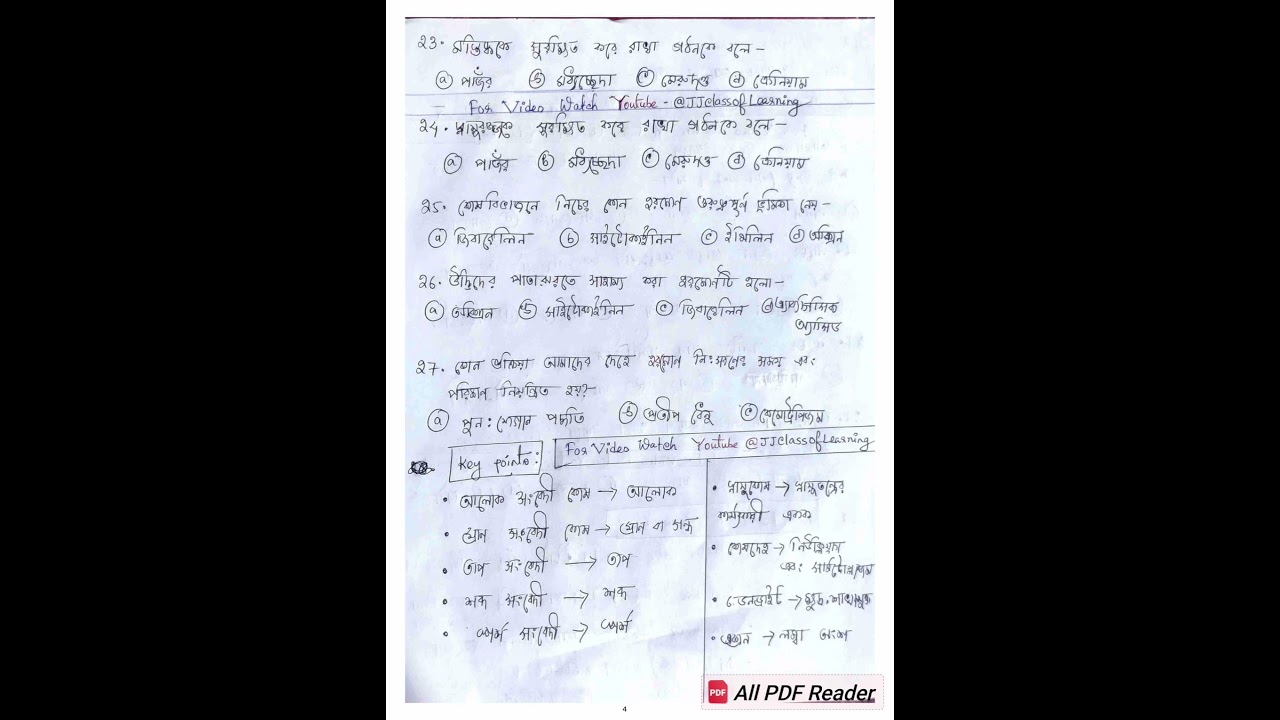 23. মস্তিষ্ককে সুরক্ষিত করে রাখা গঠনকে বলে –
ⓐ পাঁজর ⓑ মধ্যচ্ছেদা ⓒ মেরুদণ্ড ⓓ ক্রেনিয়াম
For Video Watch Youtube - @JJclassofLearning
24. সুরক্ষিত করে রাখা গঠনকে বলে –
ⓐ পাঁজর ⓑ মধ্যচ্ছেদা ⓒ মেরুদণ্ড ⓓ ক্রেনিয়াম
25. কোষ বিভাজনে নিচের কোন হরমোন গুরুত্বপূর্ণ ভূমিকা নেয় –
ⓐ জিব্বারেলিন ⓑ সাইটোকাইনিন ⓒ ইথিলিন ⓓ অক্সিন
26. উদ্ভিদের পাতা ঝরতে সাহায্য করা হরমোনটি হলো –
ⓐ অক্সিন ⓑ সাইটোকাইনিন ⓒ জিব্বারেলিন ⓓ অ্যাবসিসিক
অ্যাসিড
27. কোন প্রক্রিয়া আমাদের দেহে হরমোন নিঃসরণের সময় এবং
পরিমাণ নিয়ন্ত্রিত হয়? –
ⓐ পুন: পদ্ধতি ⓑ প্রতীপ বিন্দু ⓒ কেমোট্রপিজম
Key points:
For Video Watch Youtube @JJclassofLearning
• আলোক সংবেদী কোষ → আলোক
• ঘ্রান সংবেদী কোষ → ঘ্রান বা গন্ধ
• তাপ সংবেদী → তাপ
• শব্দ সংবেদী → শব্দ
• স্পর্শ সংবেদী → স্পর্শ
• স্নায়ুকোষ → স্নায়ুতন্ত্রের
কার্যকারী একক
• কোষদেহ → নিউক্লিয়াস
এবং সাইটোপ্লাজম
• ডেনড্রাইট →
• এক্সন → লম্বা অংশ
PDF All PDF Reader
4